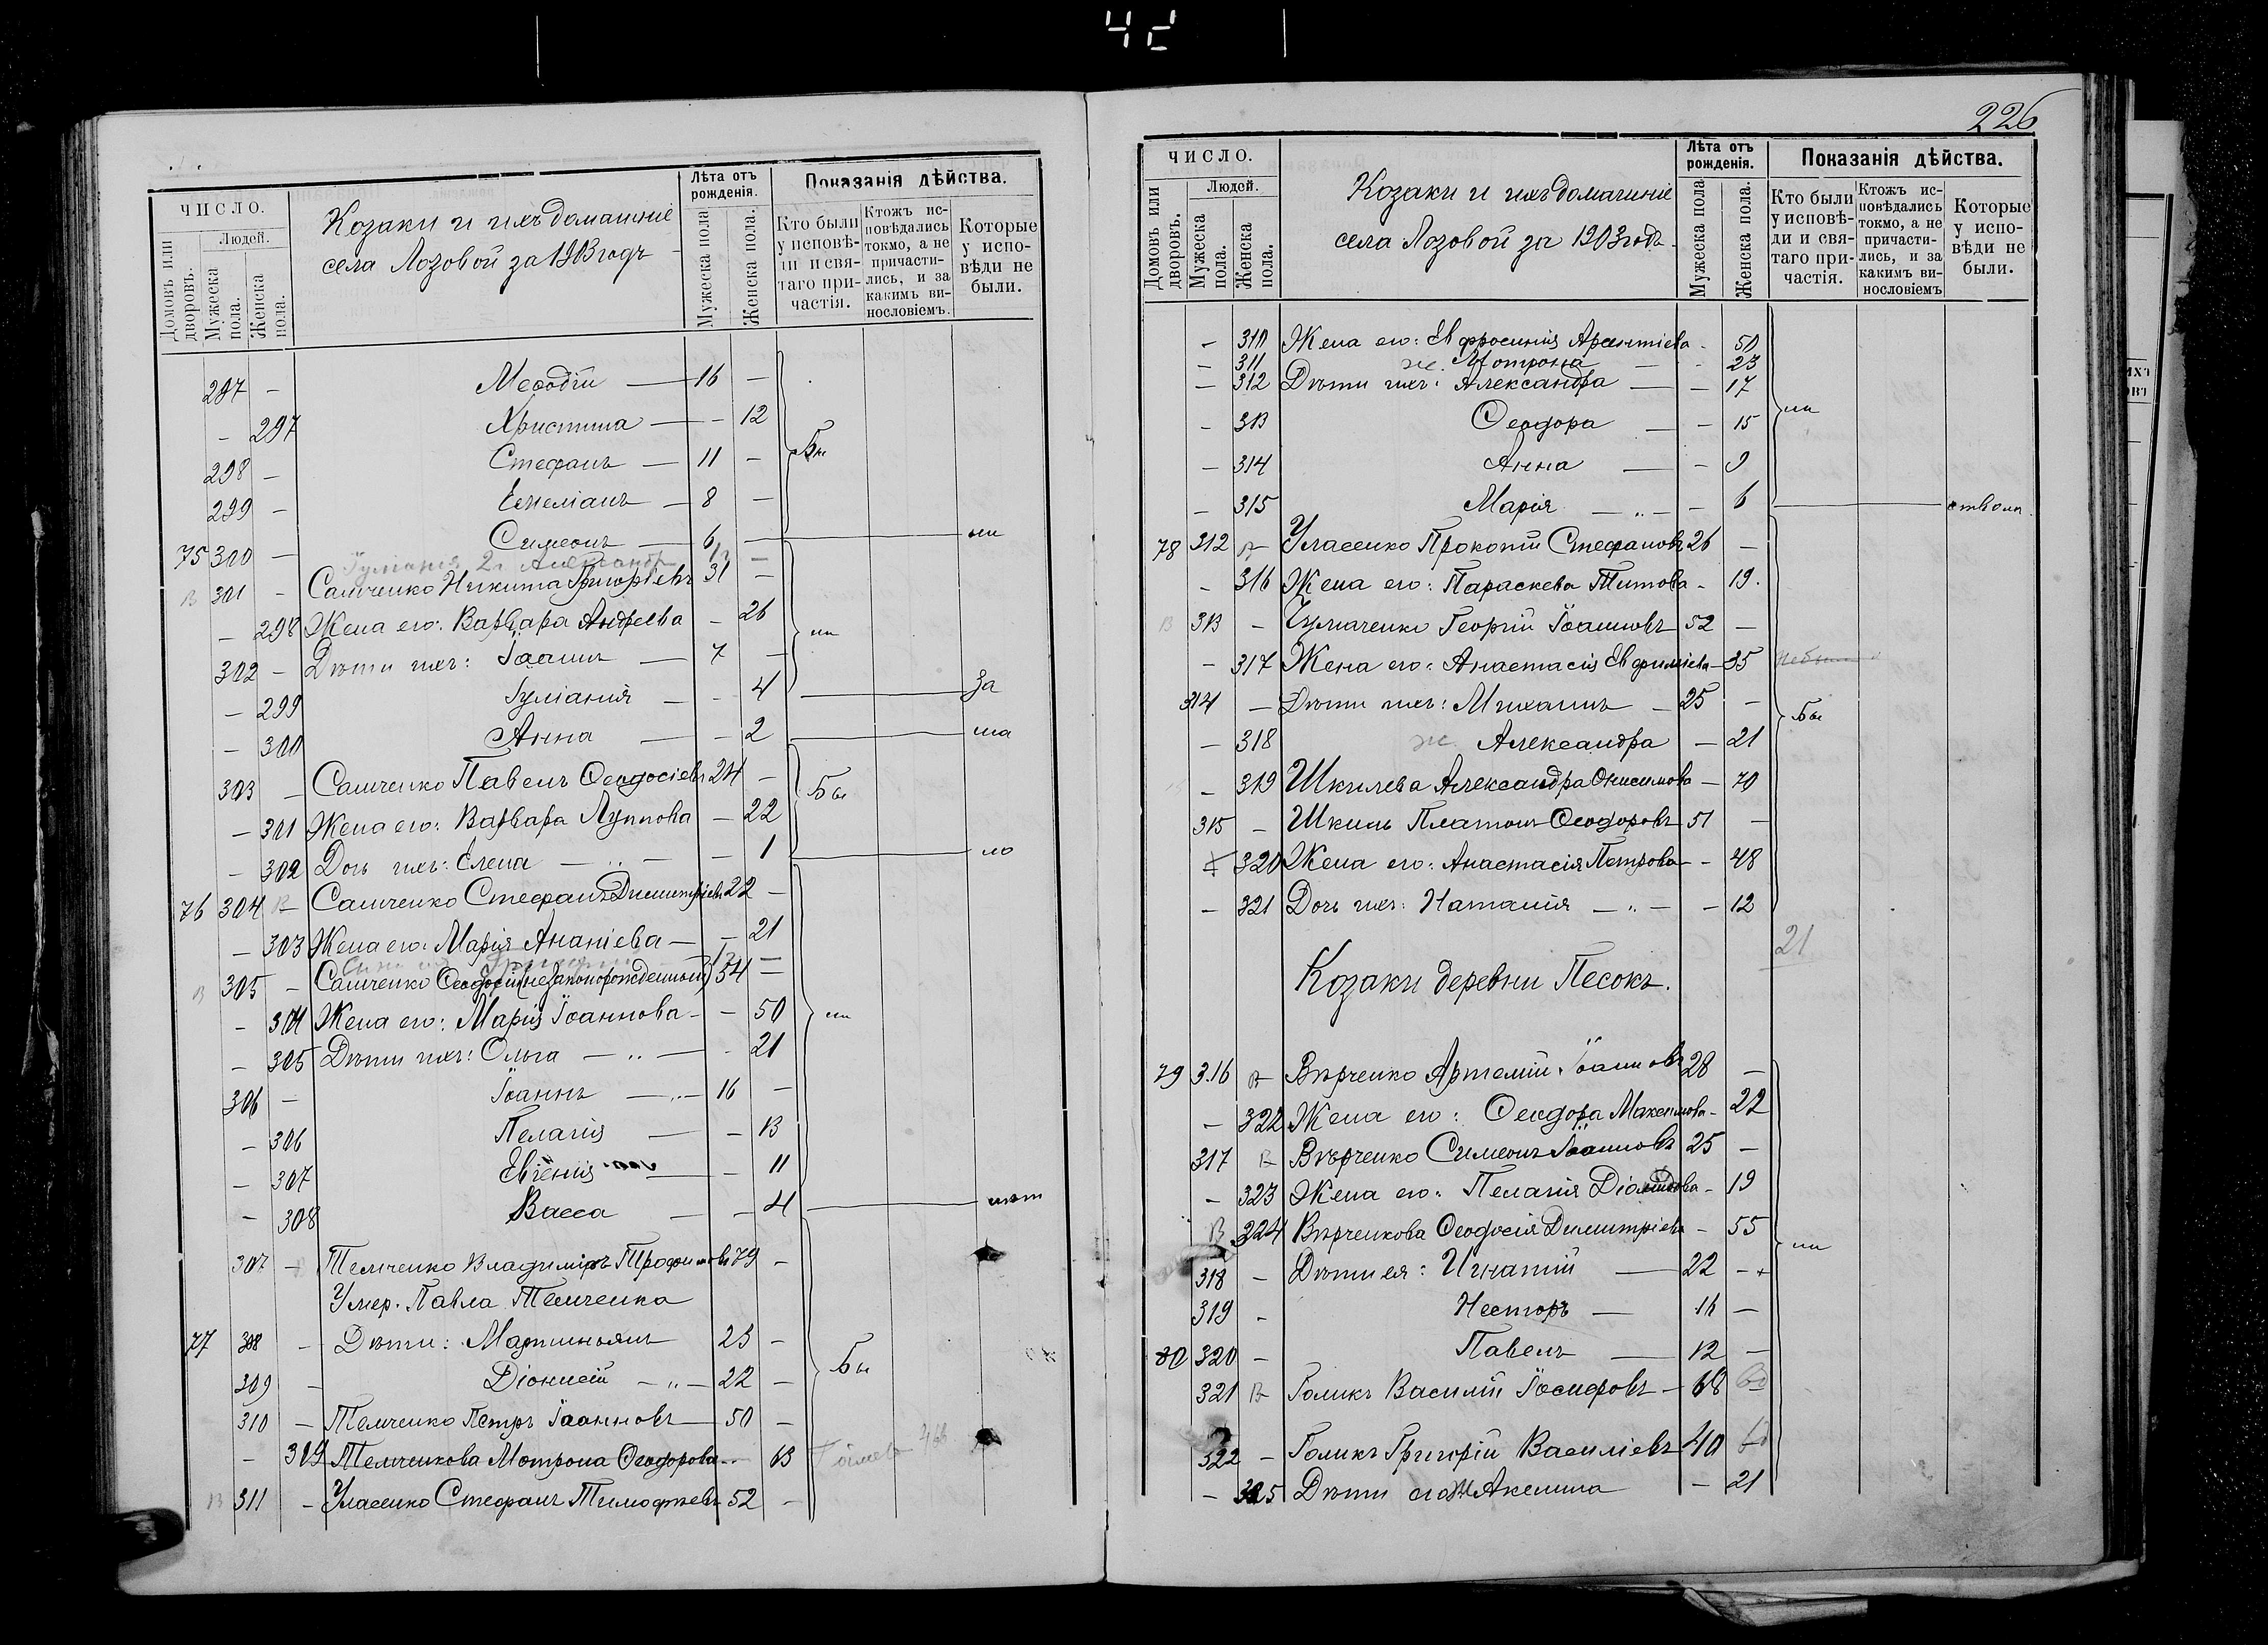 42
ЧИСЛО.
Домовъ или дворовъ.
Людей.
Мужеска пола.
Женска пола.
Козаки и ихъ домашніе
села Лозовой за 1903 годъ
Лѣта отъ рожденія.
Мужеска пола
Женска пола.
Показанія дѣйства.
Кто были у исповѣди и святаго причастія.
Ктожъ исповѣдались токмо, а не причастились, и за какимъ винословіемъ.
Которые у исповѣди не были.
297 — Меѳодій — 16 —
— 297 Христина — — 12
298 — Стефанъ — 11 — Бы
299 — Емеліанъ — 8 —
75 300 — Симеонъ — 6 — ли
Іуліанія 2. Александр
В 301 — Самченко Никита Григоріевъ 31 —
— 298 Жена его: Варвара Андреева — 26
302 — Дѣти ихъ: Іоаннъ — 7 — ли
— 299 Іуліанія — — 4 За
— 300 Анна — — 2 ма
303 — Самченко Павелъ Ѳеодосіевъ 24 — Бы
— 301 Жена его: Варвара Луппова — 22
— 302 Дочь ихъ: Елена — „ — — 1 ло
76 304 В— Самченко Стефанъ Димитріевъ 22 —
— 303 Жена его: Марія Ананіева — — 21
В 305 — Самченко Ѳеодосій (незаконорожденный) 54 —
— 304 Жена его: Марія Іоаннова — — 50 ли
— 305 Дѣти ихъ: Ольга — „ — — 21
306 — Іоаннъ — „ — 16 —
— 306 Пелагія — — 13
— 307 Евгенія — — 11
— 308 Васса — — 4 лѣт
307 — Темченко Владиміръ Трофимовъ 79 —
Умер. Павла Темченка
77 308 — Дѣти: Мартиньянъ 25 —
309 — Діонисій — „ — 22 — Бы
310 — Темченко Петръ Іоанновъ — 50 —
— 309 Темченкова Мотрона Ѳеодорова — 63
В 311 — Уласенко Стефанъ Тимофѣевъ 52 —
226
ЧИСЛО.
Домовъ или дворовъ.
Людей.
Мужеска пола.
Женска пола.
Козаки и ихъ домашніе
села Лозовой за 1903 годъ.
Лѣта отъ рожденія.
Мужеска пола
Женска пола.
Показанія дѣйства.
Кто были у исповѣди и святаго причастія.
Ктожъ исповѣдались токмо, а не причастились, и за какимъ винословіемъ
Которые у исповѣди не были.
— 310 Жена его: Евфросинія Арсентіева — 50
— 311 ж. Мотрона — — 23
— 312 Дѣти ихъ: Александра — — 17
— 313 Ѳеодора — — 15 ли
— 314 Анна — — 9
— 315 Марія — „ — — 6
78 312 В— Уласенко Прокопій Стефановъ 26 —
— 316 Жена его: Параскева Титова — 19.
В 313 — Чумаченко Георгій Іоанновъ 52 —
— 317 Жена его: Анастасія Евфиміева — 35
314 — Дѣти ихъ: Михаилъ — 25 — Бы
— 318 ж. Александра — 21
— 319 Шкилева Александра Онисимова — 70
315 — Шкиль Платонъ Ѳеодоровъ 51 —
320 Жена его: Анастасія Петрова — 48
— 321 Дочь ихъ: Наталія — „ — — 12
21
Козаки деревни Песокъ.
79 316 В— Вѣрченко Артемій Іоанновъ 28 —
— 322 Жена его: Ѳеодора Максимова — 22
317 В— Вѣрченко Симеонъ Іоанновъ 25 —
— 323 Жена его: Пелагія — 19
В 324 Вѣрченкова Ѳеодосія Димитріева — 55 ли
318 — Дѣти ея: Игнатій — 22 —
319 — Несторъ — 16 —
80 320 — Павелъ — 12 —
321 В— Голикъ Василій Іосифовъ — 68
322 — Голикъ Григорій Василіевъ 40
— 325 Дѣти его Акилина — 21